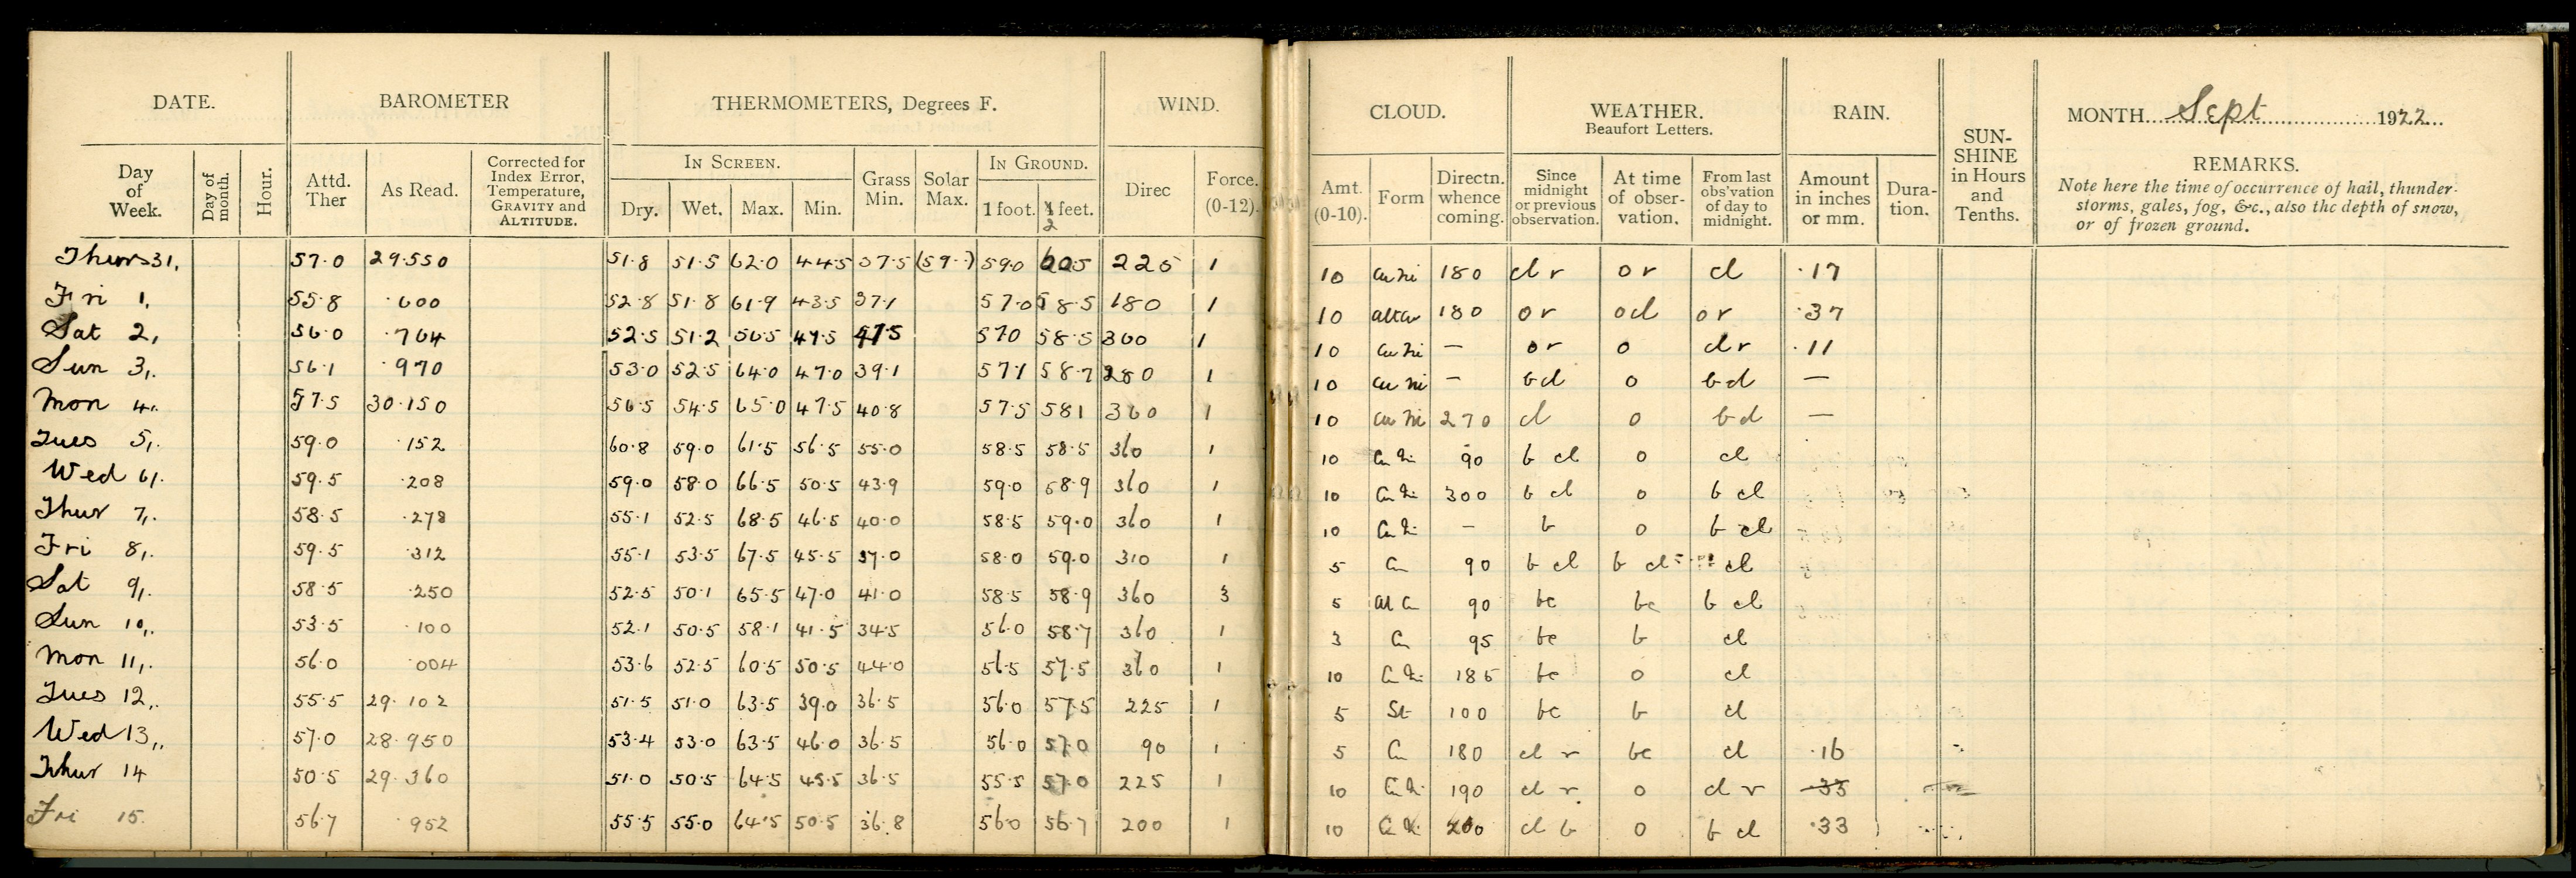 DATE. BAROMETER THERMOMETERS, Degrees F. WIND. CLOUD. WEATHER. Beaufort Letters. RAIN. SUN-SHINE in Hours and Tenths. MONTH Sept 1922
IN SCREEN. IN GROUND. REMARKS.
Note here the time of occurrence of hail, thunder-
storms, gales, fog, &c., also the depth of snow,
or of frozen ground.
Day of Week. Day of month. Hour. Attd. Ther As Read. Corrected for Index Error, Temperature, GRAVITY and ALTITUDE. Dry. Wet. Max. Min. Grass Min. Solar Max. 1 foot. 2 feet. Direc Force. (0-12). Amt. (0-10). Form Directn. whence coming. Since midnight or previous observation. At time of obser-vation. From last obs'vation of day to midnight. Amount in inches or mm. Dura-tion.
Thurs 31, 57.0 29.550 51.8 51.5 62.0 44.5 37.5 590 60.5 225 1 10 cu ni 180 cl r o r cl .17
Fri 1, 55.8 .600 52.8 51.8 61.9 43.5 37.1 57.0 58.5 180 1 10 alt cu 180 o r o cl o r .37
Sat 2, 56.0 .764 52.5 51.2 56.5 47.5 47.5 570 58.5 360 1 10 cu ni — o r o cl r .11
Sun 3, 56.1 .970 53.0 52.5 64.0 47.0 39.1 57.1 58.7 280 1 10 cu ni — b cl o b cl —
Mon 4, 57.5 30.150 56.5 54.5 65.0 47.5 40.8 57.5 581 360 1 10 cu ni 270 cl o b cl —
Tues 5, 59.0 .152 60.8 59.0 61.5 56.5 55.0 58.5 58.5 360 1 10 Cu Ni 90 b cl o cl
Wed 6, 59.5 .208 59.0 58.0 66.5 50.5 43.9 59.0 58.9 360 1 10 Cu Ni 300 b cl o b cl
Thur 7, 58.5 .278 55.1 52.5 68.5 46.5 40.0 58.5 59.0 360 1 10 Cu Ni — b o b cl
Fri 8, 59.5 .312 55.1 53.5 67.5 45.5 37.0 58.0 59.0 310 1 5 Cu 90 b cl b cl cl
Sat 9, 58.5 .250 52.5 50.1 65.5 47.0 41.0 58.5 58.9 360 3 5 Al Cu 90 bc bc b cl
Sun 10, 53.5 .100 52.1 50.5 58.1 41.5 34.5 56.0 58.7 360 1 3 Cu 95 bc b cl
Mon 11, 56.0 004 53.6 52.5 60.5 50.5 44.0 56.5 57.5 360 1 10 Cu Ni 185 bc o cl
Tues 12, 55.5 29.102 51.5 51.0 63.5 39.0 36.5 56.0 57.5 225 1 5 St 100 bc b cl
Wed 13, 57.0 28.950 53.4 53.0 63.5 46.0 36.5 56.0 57.0 90 1 5 Cu 180 cl r bc cl .16
Thur 14 50.5 29.360 51.0 50.5 64.5 45.5 36.5 55.5 57.0 225 1 10 Cu Ni 190 cl r o cl r 35
Fri 15. 56.7 .952 55.5 55.0 64.5 50.5 36.8 56.0 56.7 200 1 10 Cu Ni 200 cl b o b cl .33